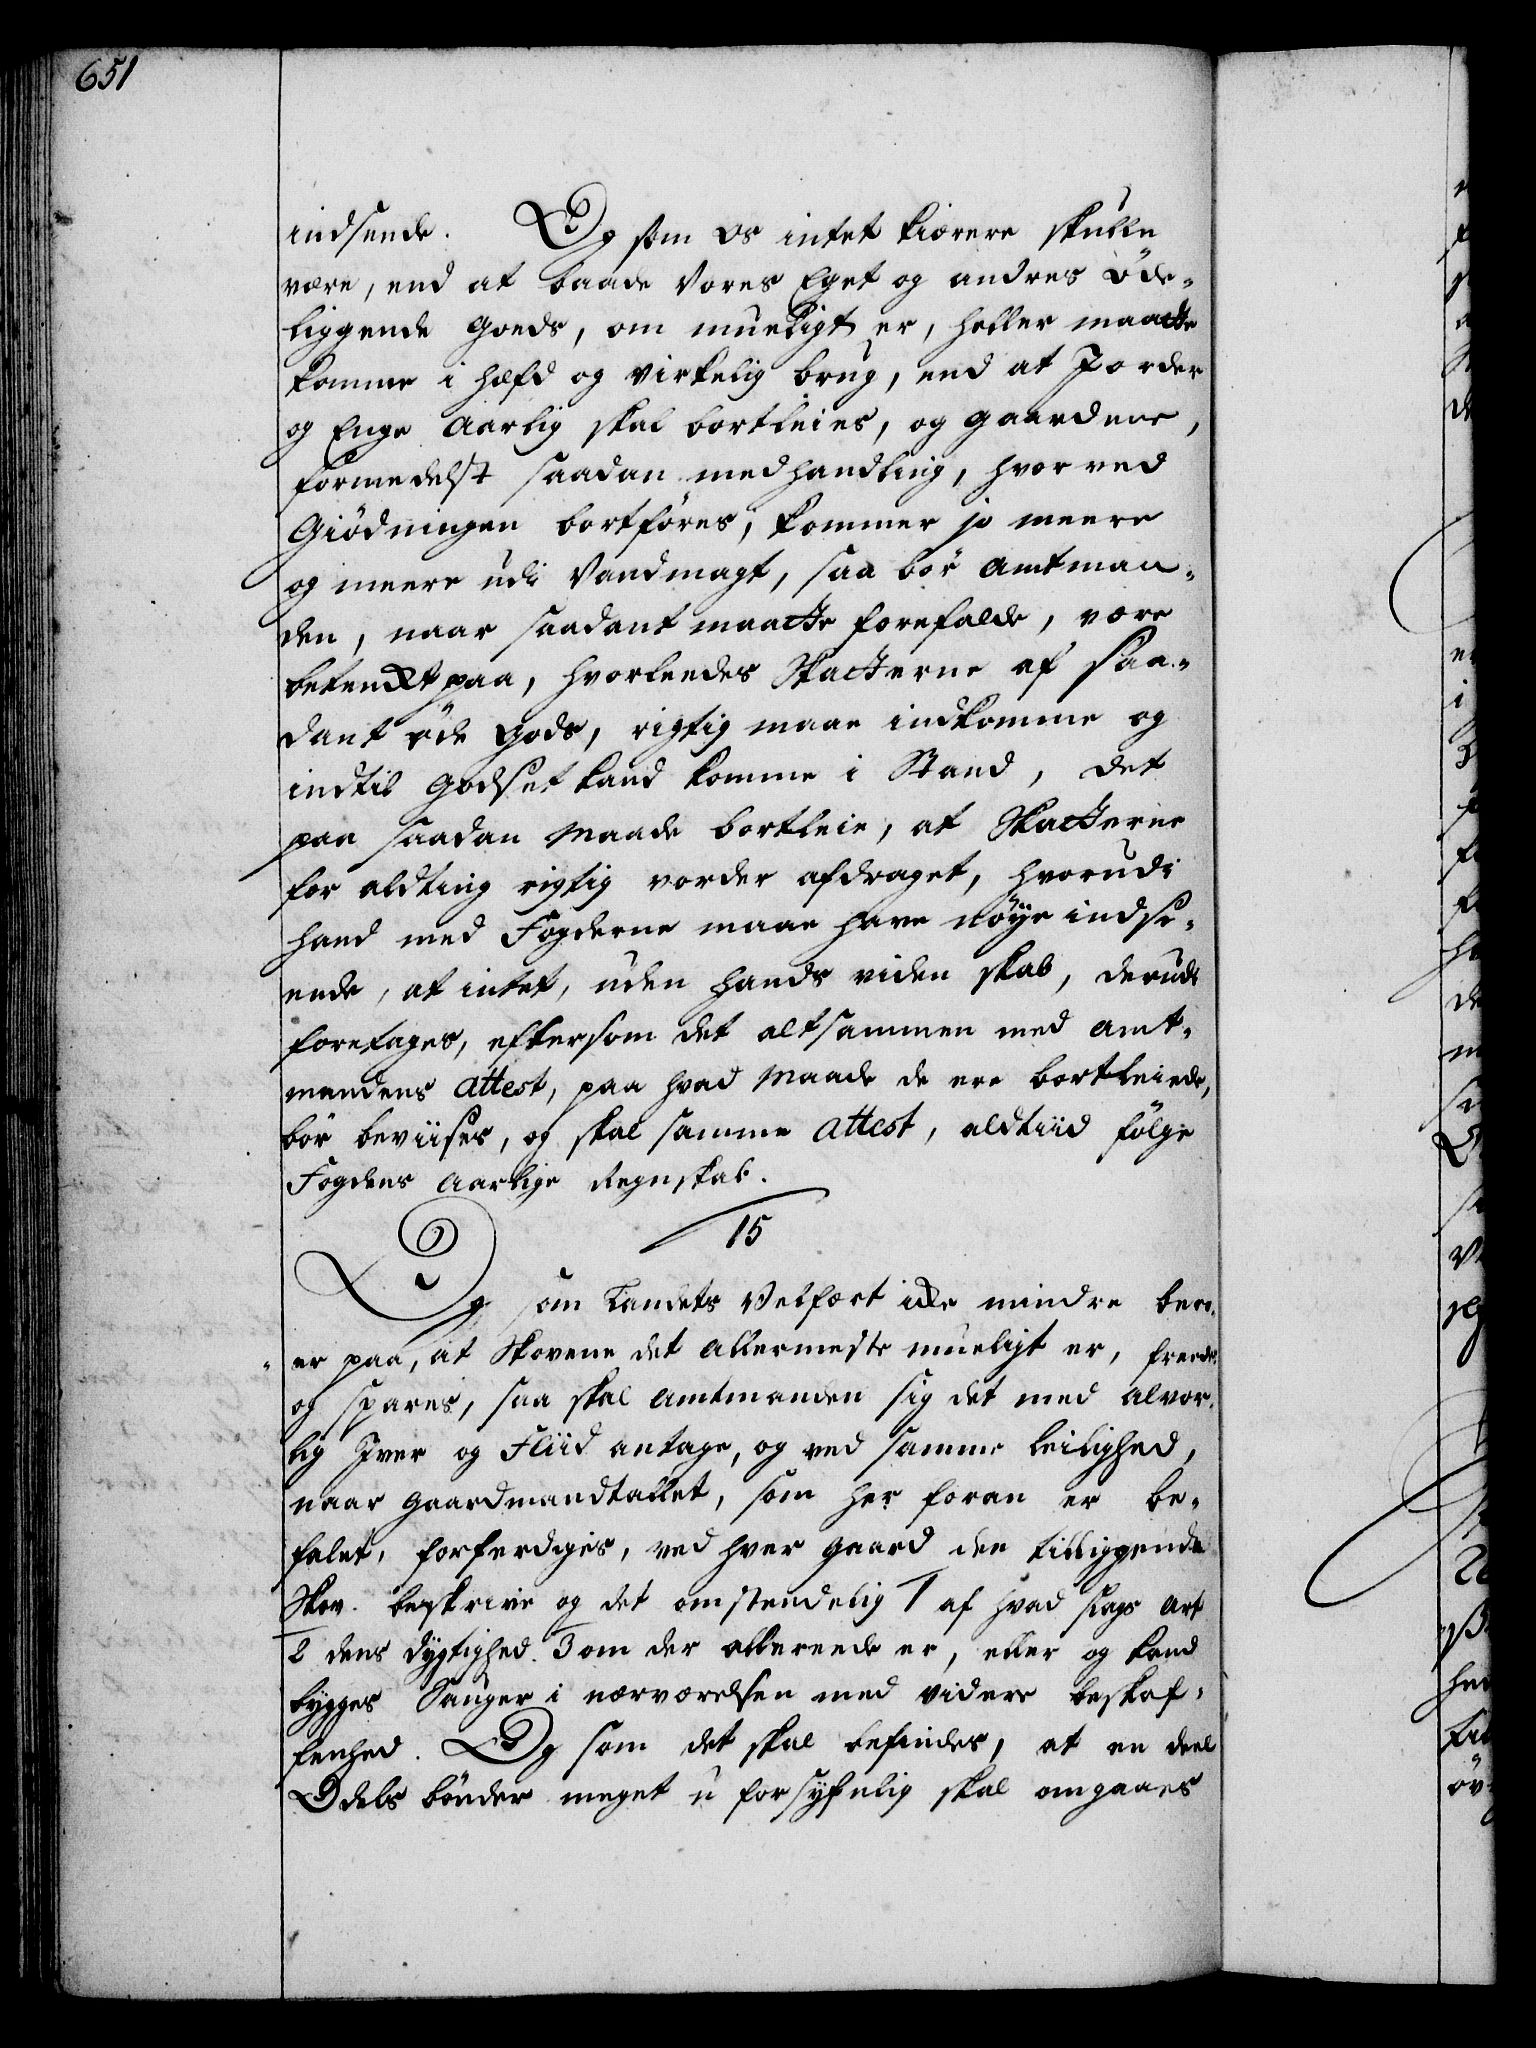 651
indsende. Og som Os intet kiærere skulle
være, end at baade Vores Eget og andres Øde-
liggende Goeds, om mueligt er, heller maatte
komme i Hæfd og virkelig brug, end at Jorder
og Enge Aarlig skal bortleies, og gaardene,
formedelst saadan medhandling, hvor ved
Giödningen bortföres, kommer jo meere
og meere udi Vandmagt, saa bör Amtman-
den, naar saadant maatte forefalde, være
betenckt paa, hvorleedes Skatterne af saa-
dant øde Gods, rigtig maae indkomme og
indtil Godset kand komme i Stand, det
paa saadan Maade bortleie, at Skatterne
for alting rigtig vorder afdraget, hvorudi
hand med Fogderne maae have nöye indse-
ende, at intet, uden hands viden skab, derudi
foretages, eftersom det altsammen med Amt-
mandens Attest, paa hvad Maade de ere bortleiede,
bör beviises, og skal samme Attest, aldtiid fölge
Fogdens Aarlige Regnskab.
15
Og som Landets Velfært icke mindre bero-
er paa, at Skovene det allermeste mueligt er, freedes
og spares, saa skal Amtmanden sig det med alvor-
lig Iver og Fliid antage, og ved samme leilighed,
naar Gaardmandtallet, som her foran er be-
falet, forferdiges, ved hver gaard den tilliggende
Skov. beskrive og det omstendelig 1 af hvad slags Art
2 dens dygtighed. 3 om der allereede er, eller og kand
bygges Sauger i nærværelsen med videre beskaf-
fenhed. Og som det skal befindes, at en deel
Odels bönder meget u forsynlig skal omgaaes